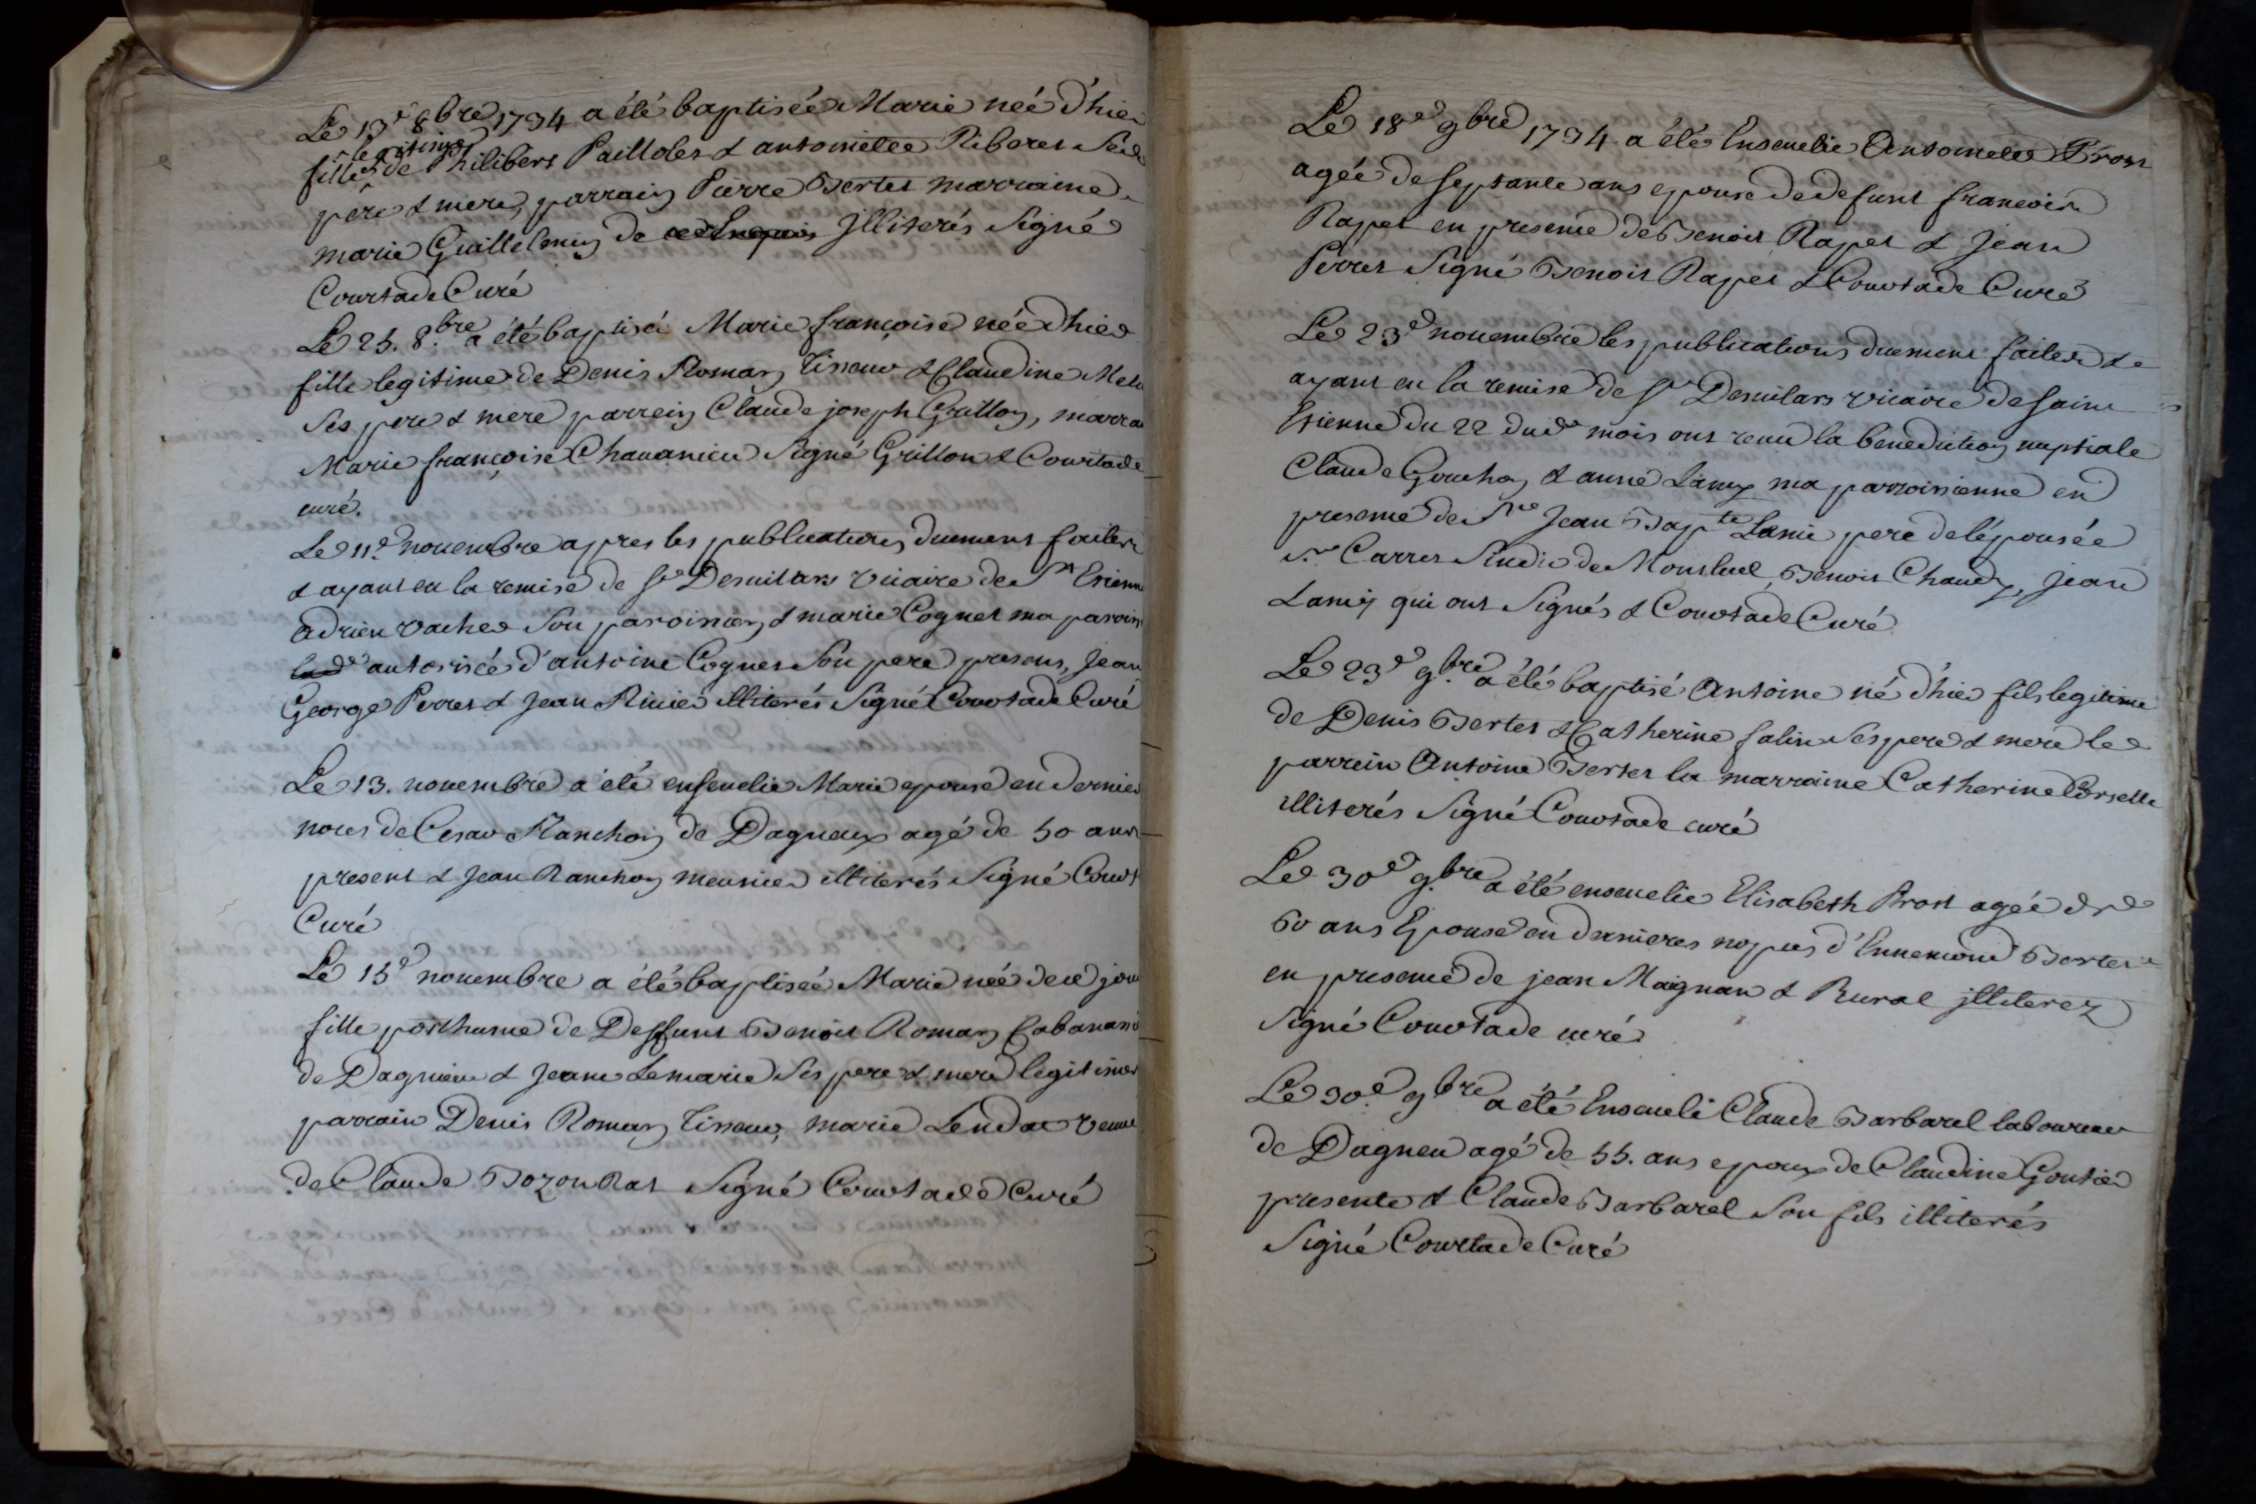 Le 13e 8bre 1734 a été baptisée Marie née d'hier
legitime
fille de Philibert Paillolet & antoinette Riboret Ses
pere & mere, parrain Pierre Bertet marraine
marie Guillelmin de illiterés Signé
Courtade Curé
Le 25. 8.bre a été baptisé Marie françoise née d'hier
fille legitime de Denis Roman Tisseur & Claudine
Ses pere & mere parrein Claude joseph Grillon, marra
Marie françoise Chavanieu Signé Grillon & Courtade
curé.
Le 11e novembre apres les publications duement faites
& ayant eu la remise de Sr Desuilars vicaire de St Etienne
adrien vacher Son paroisien & marie Cognet ma parois
autorisée d'antoine Cognet Son pere present, Jean
George Perret & Jean Rivier illiterés Signé Courtade Curé
Le 13. novembre a été ensevelie Marie epouse en dernier
noces de Cesar Ranchon de Dagneux agé de 50 ans
present & Jean Ranchon meunier illiterés Signé Court
Curé
Le 15e novembre a été baptisée Marie née de ce jour
fille posthume de Deffunt Benoit Roman Cabanand
de Dagnieu & Jeane Lemarie Ses pere & mere legitimes
parrain Denis Roman Tisseur, marie Lendat veuve
de Claude Bozon Rat Signé Courtade Curé
Le 18e 9bre 1734 a été Ensevelie Antoinette Prost
agée de septante ans epouse de defunt francois
Rapet en presence de Benoit Rapet & Jean
Perret Signé Benoit Rapet & Courtade Curé
Le 23e novembre les publications duement faites &
ayant eu la remise de Sr Desuilars vicaire de saint
Etienne du 22 dud. mois ont recu la benediction nuptiale
Claude Gouchon & anne Lamy ma parroisienne en
presence de Sre Jean Bapte Lamie pere de l'épousée
Sr Carret Sindic de Monluel Benoit Chaudy, Jean
Lamy qui ont Signés & Courtade Curé
Le 23e 9.bre a été baptisé Antoine né d'hier fils legitime
de Denis Bertet & Catherine falin Ses pere & mere le
parrein Antoine Bertet la marraine Catherine Corselle
illiterés Signé Courtade curé
Le 30e 9.bre a été ensevelie Elisabeth Prost agée de
60 ans Epouse en dernieres nopces d'Ennemond Bertet
en presence de jean Maignan & Rural jlliterez
Signé Courtade curé
Le 30.e 9bre a été Enseveli Claude Barbarel laboureur
de Dagneu agé de 55. ans epoux de Claudine Goutier
presente & Claude Barbarel Son fils illiterés
Signé Courtade Curé